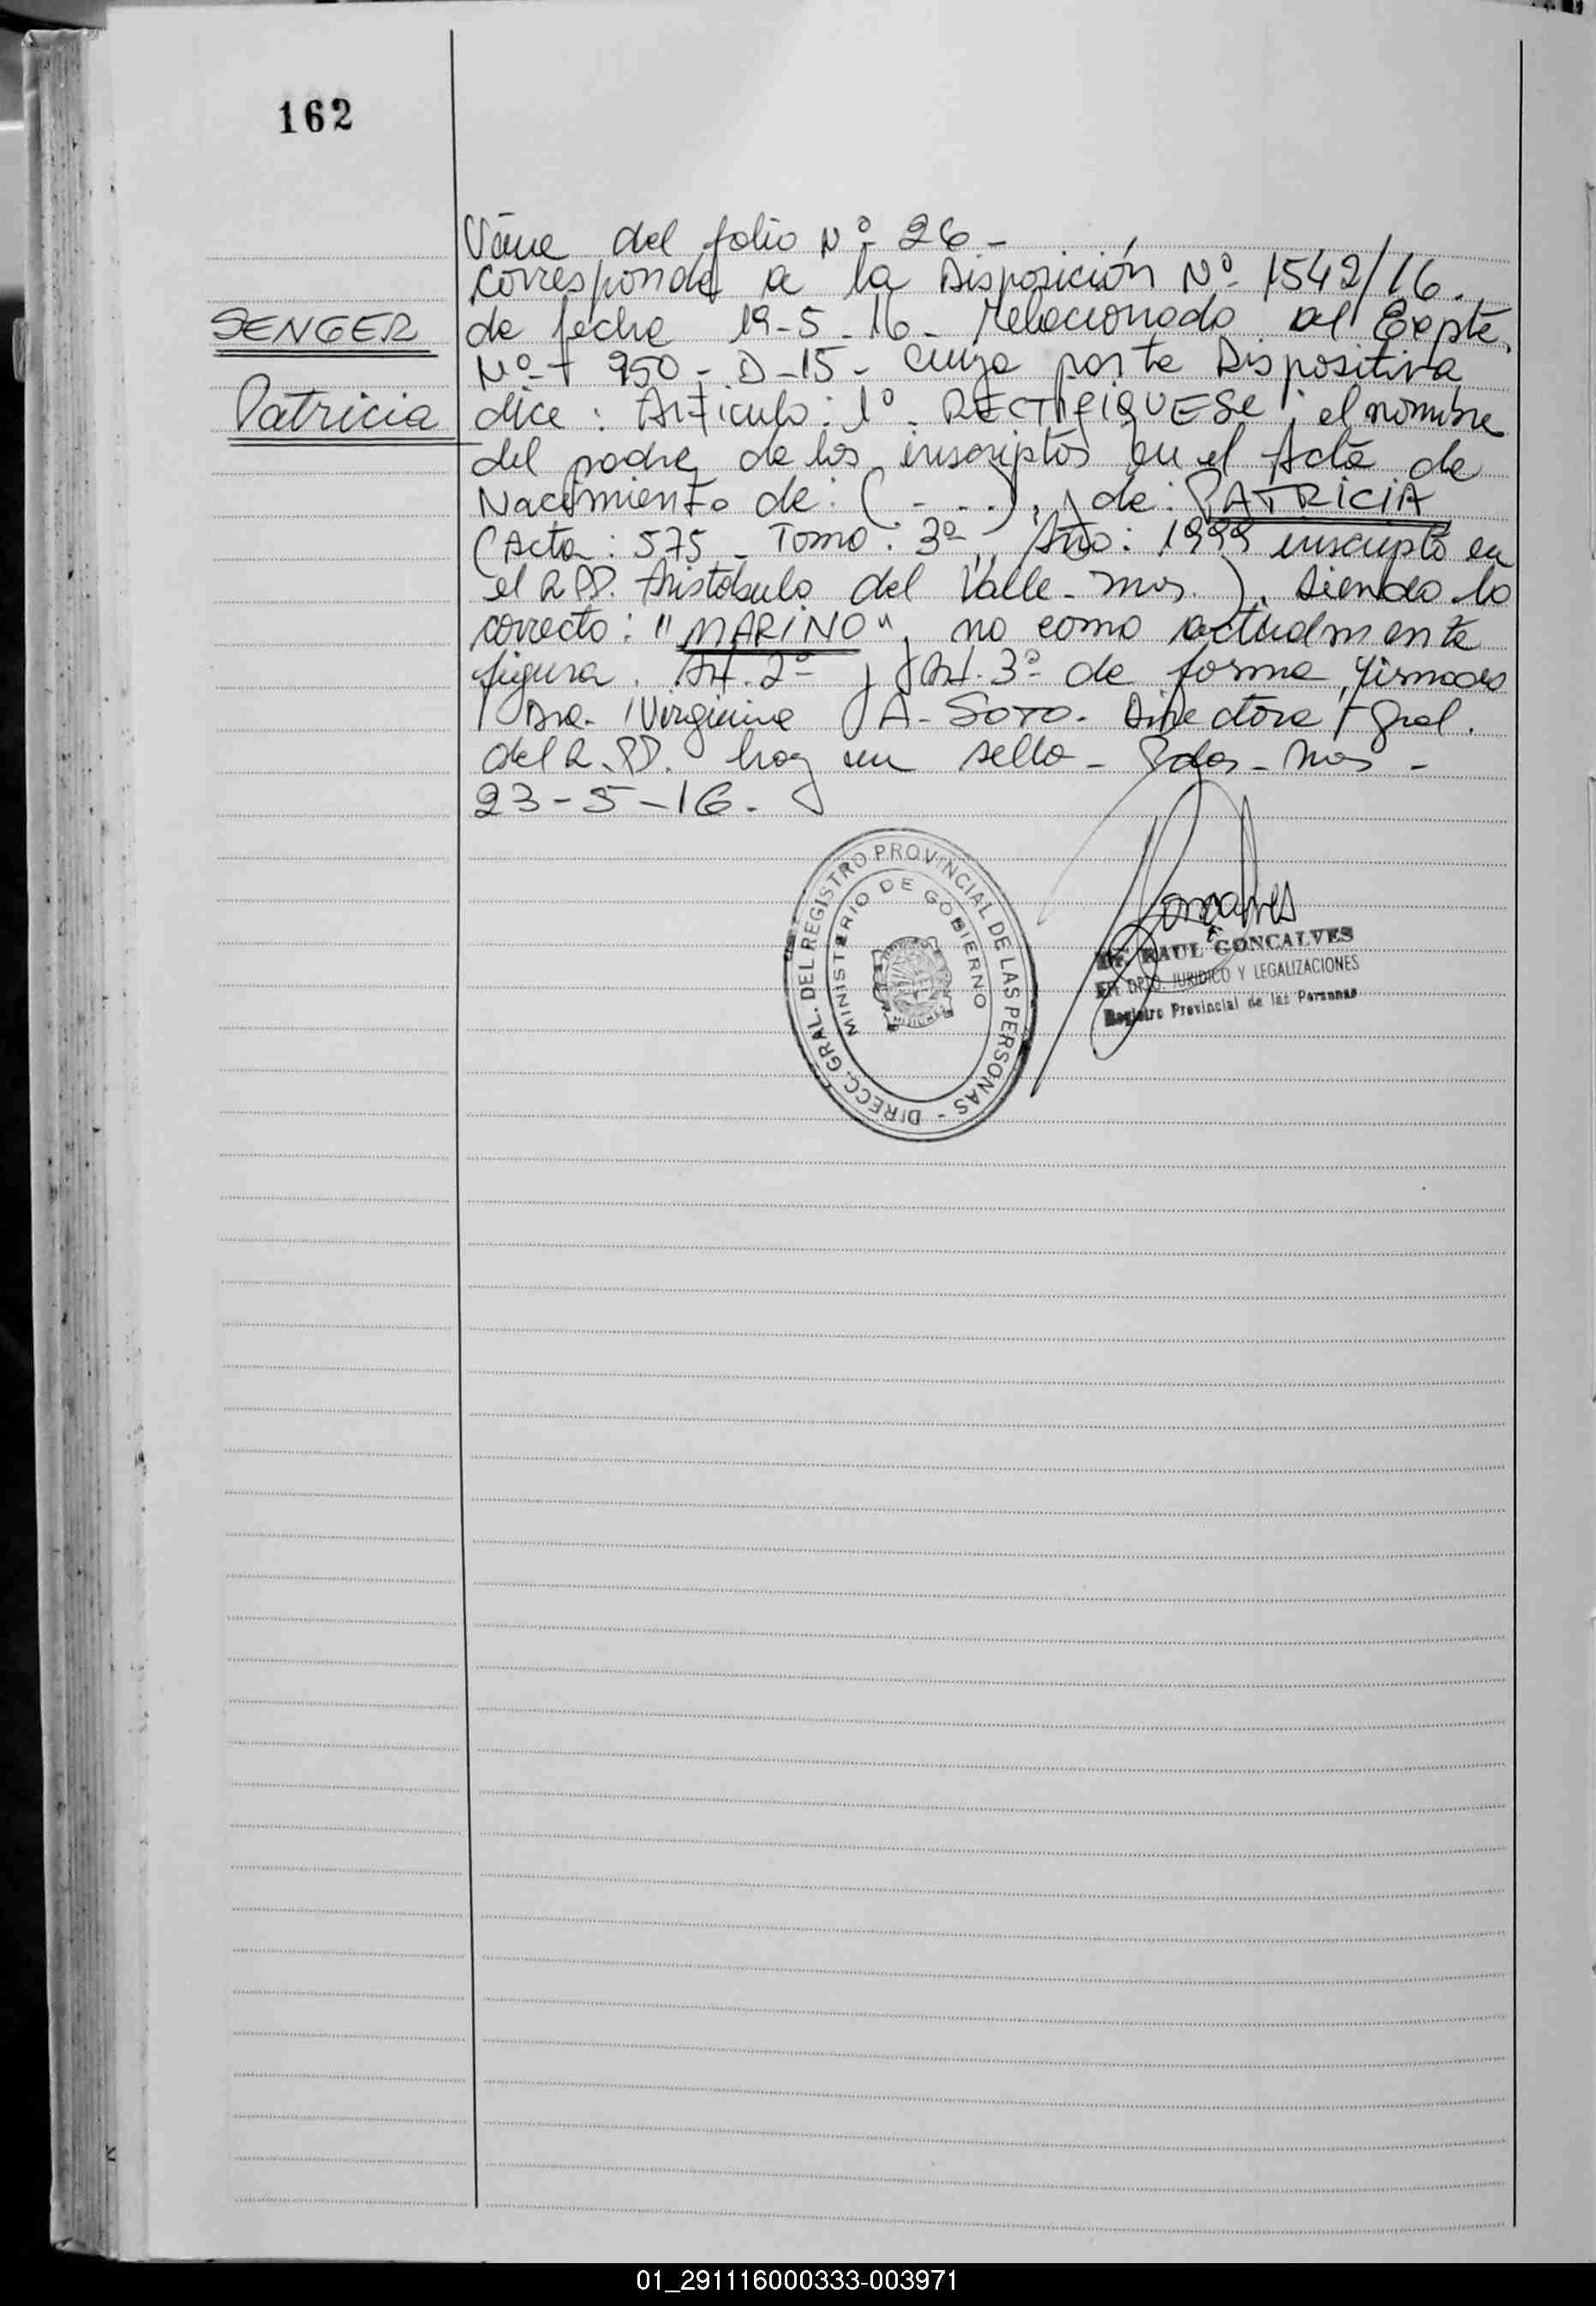 162
Viene del folio Nº 26 -
corresponde a la Disposición Nº 1542/16.
SENGER
de fecha 19-5-16- Relacionado al Expte.
Nº 950- D-15- Cuya parte Dispositiva
Patricia
dice: Articulo: 1º- RECTIFIQUESE; el nombre
del padre de los inscriptos en el Acta de
Nacimiento de: (....), y de: PATRICIA
(Acta: 575- Tomo: 3º-, Año: 1999 inscripto en
el R.PP. Aristóbulo del Valle- mns.). Siendo lo
correcto: "MARINO", no como actualmente
figura. Art. 2º y Art. 3º de forma, firmado
Dra. Virginia A- SOTO- Directora Gral.
del R.PP. hay un sello- Pdas- Mns -
23-5-16-
DIRECC. GRAL. DEL REGISTRO PROVINCIAL DE LAS PERSONAS -
MINISTERIO DE GOBIERNO
MISIONES
Goncalves
Dr. RAUL GONCALVES
DPTO. JURIDICO Y LEGALIZACIONES
Registro Provincial de las Personas
01_291116000333-003971